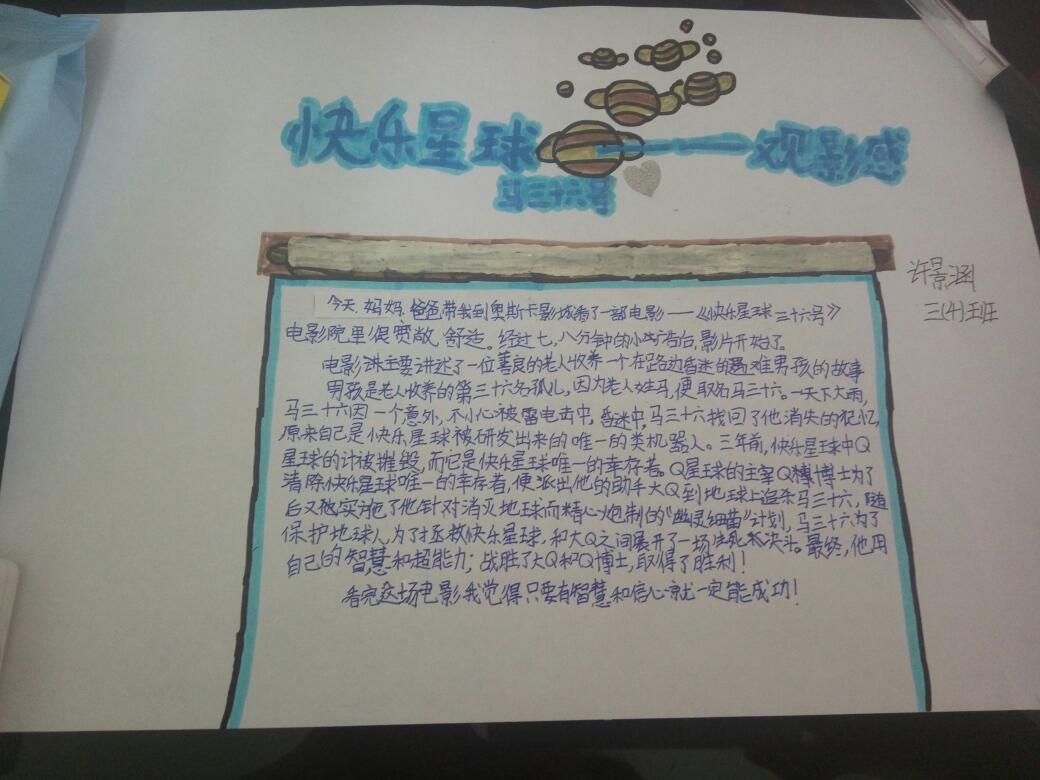 快乐星球——观影感
马三十六号
许景涵
三(4)班
今天,妈妈,爸爸带我到奥斯卡影城看了一部电影——《快乐星球三十六号》
电影院里很宽敞,舒适。经过七,八分钟的小广告台,影片开始了。
电影主要讲述了一位善良的老人收养一个在路边昏迷的遇难男孩的故事
男孩是老人收养的第三十六名孤儿,因为老人姓马,便取名马三十六。一天下大雨,
马三十六因一个意外,不小心被雷电击中,昏迷中,马三十六找回了他消失的记忆,
原来自己是快乐星球被研发出来的唯一的类机器人。三年前,快乐星球中Q
星球的计被摧毁,而它是快乐星球唯一的幸存者。Q星球的主宰Q博士为了
清除快乐星球唯一的幸存者,便派出他的助手大Q到地球上追杀马三十六,随
后又实施了他针对消灭地球而精心炮制的"幽灵细菌"计划,马三十六为了
保护地球人,为了拯救快乐星球,和大Q之间展开了一场生死决斗。最终,他用
自己的智慧和超能力;战胜了大Q和Q博士,取得了胜利!
看完这场电影我觉得只要有智慧和信心就一定能成功!